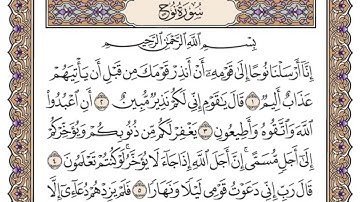 سُورَةُ نُوحٍ
بِسْمِ اللَّهِ الرَّحْمَٰنِ الرَّحِيمِ
إِنَّا أَرْسَلْنَا نُوحًا إِلَىٰ قَوْمِهِ أَنْ أَنذِرْ قَوْمَكَ مِن قَبْلِ أَن يَأْتِيَهُمْ
عَذَابٌ أَلِيمٌ ١ قَالَ يَا قَوْمِ إِنِّي لَكُمْ نَذِيرٌ مُّبِينٌ ٢ أَنِ اعْبُدُوا
اللَّهَ وَاتَّقُوهُ وَأَطِيعُونِ ٣ يَغْفِرْ لَكُم مِّن ذُنُوبِكُمْ وَيُؤَخِّرْكُمْ
إِلَىٰ أَجَلٍ مُّسَمًّى إِنَّ أَجَلَ اللَّهِ إِذَا جَاءَ لَا يُؤَخَّرُ لَوْ كُنتُمْ تَعْلَمُونَ ٤
قَالَ رَبِّ إِنِّي دَعَوْتُ قَوْمِي لَيْلًا وَنَهَارًا ٥ فَلَمْ يَزِدْهُمْ دُعَائِي إِلَّا